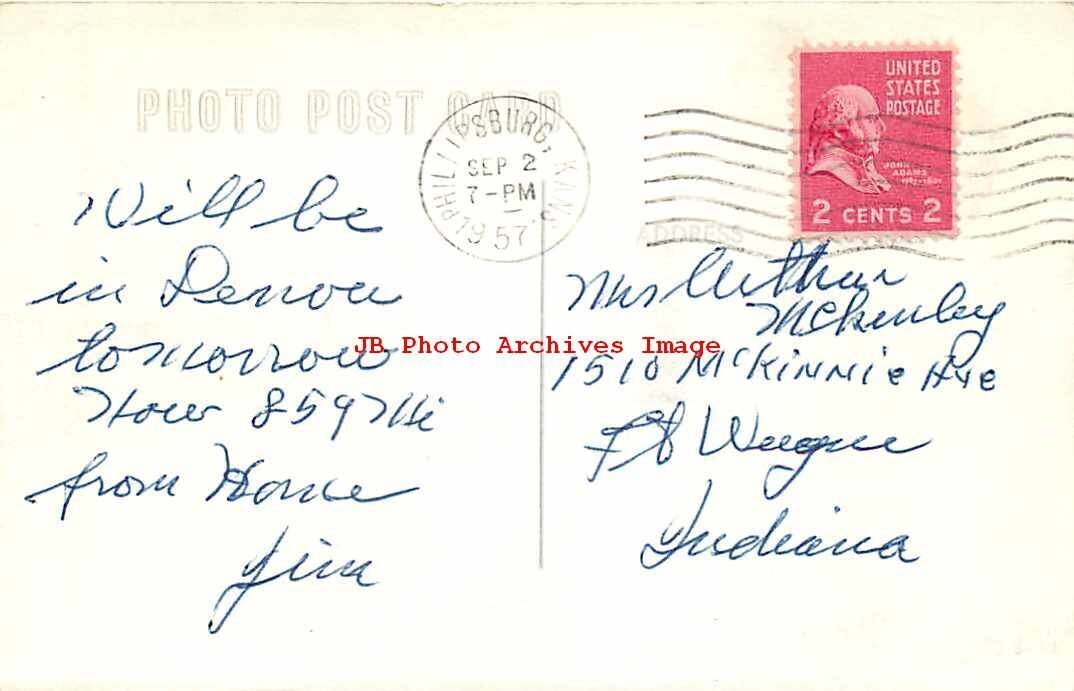 PHOTO POST CARD
PHILLIPSBURG, KANS.
SEP 2
7-PM
1957
UNITED
STATES
POSTAGE
JOHN
ADAMS
1797-1801
2 CENTS 2
ADDRESS
Will be
in Denver
tomorrow
Now 859 Mi
from Home
Jim
Mrs Arthur
McKinley
1510 McKinnie Ave
Ft Wayne
Indiana
JB Photo Archives Image